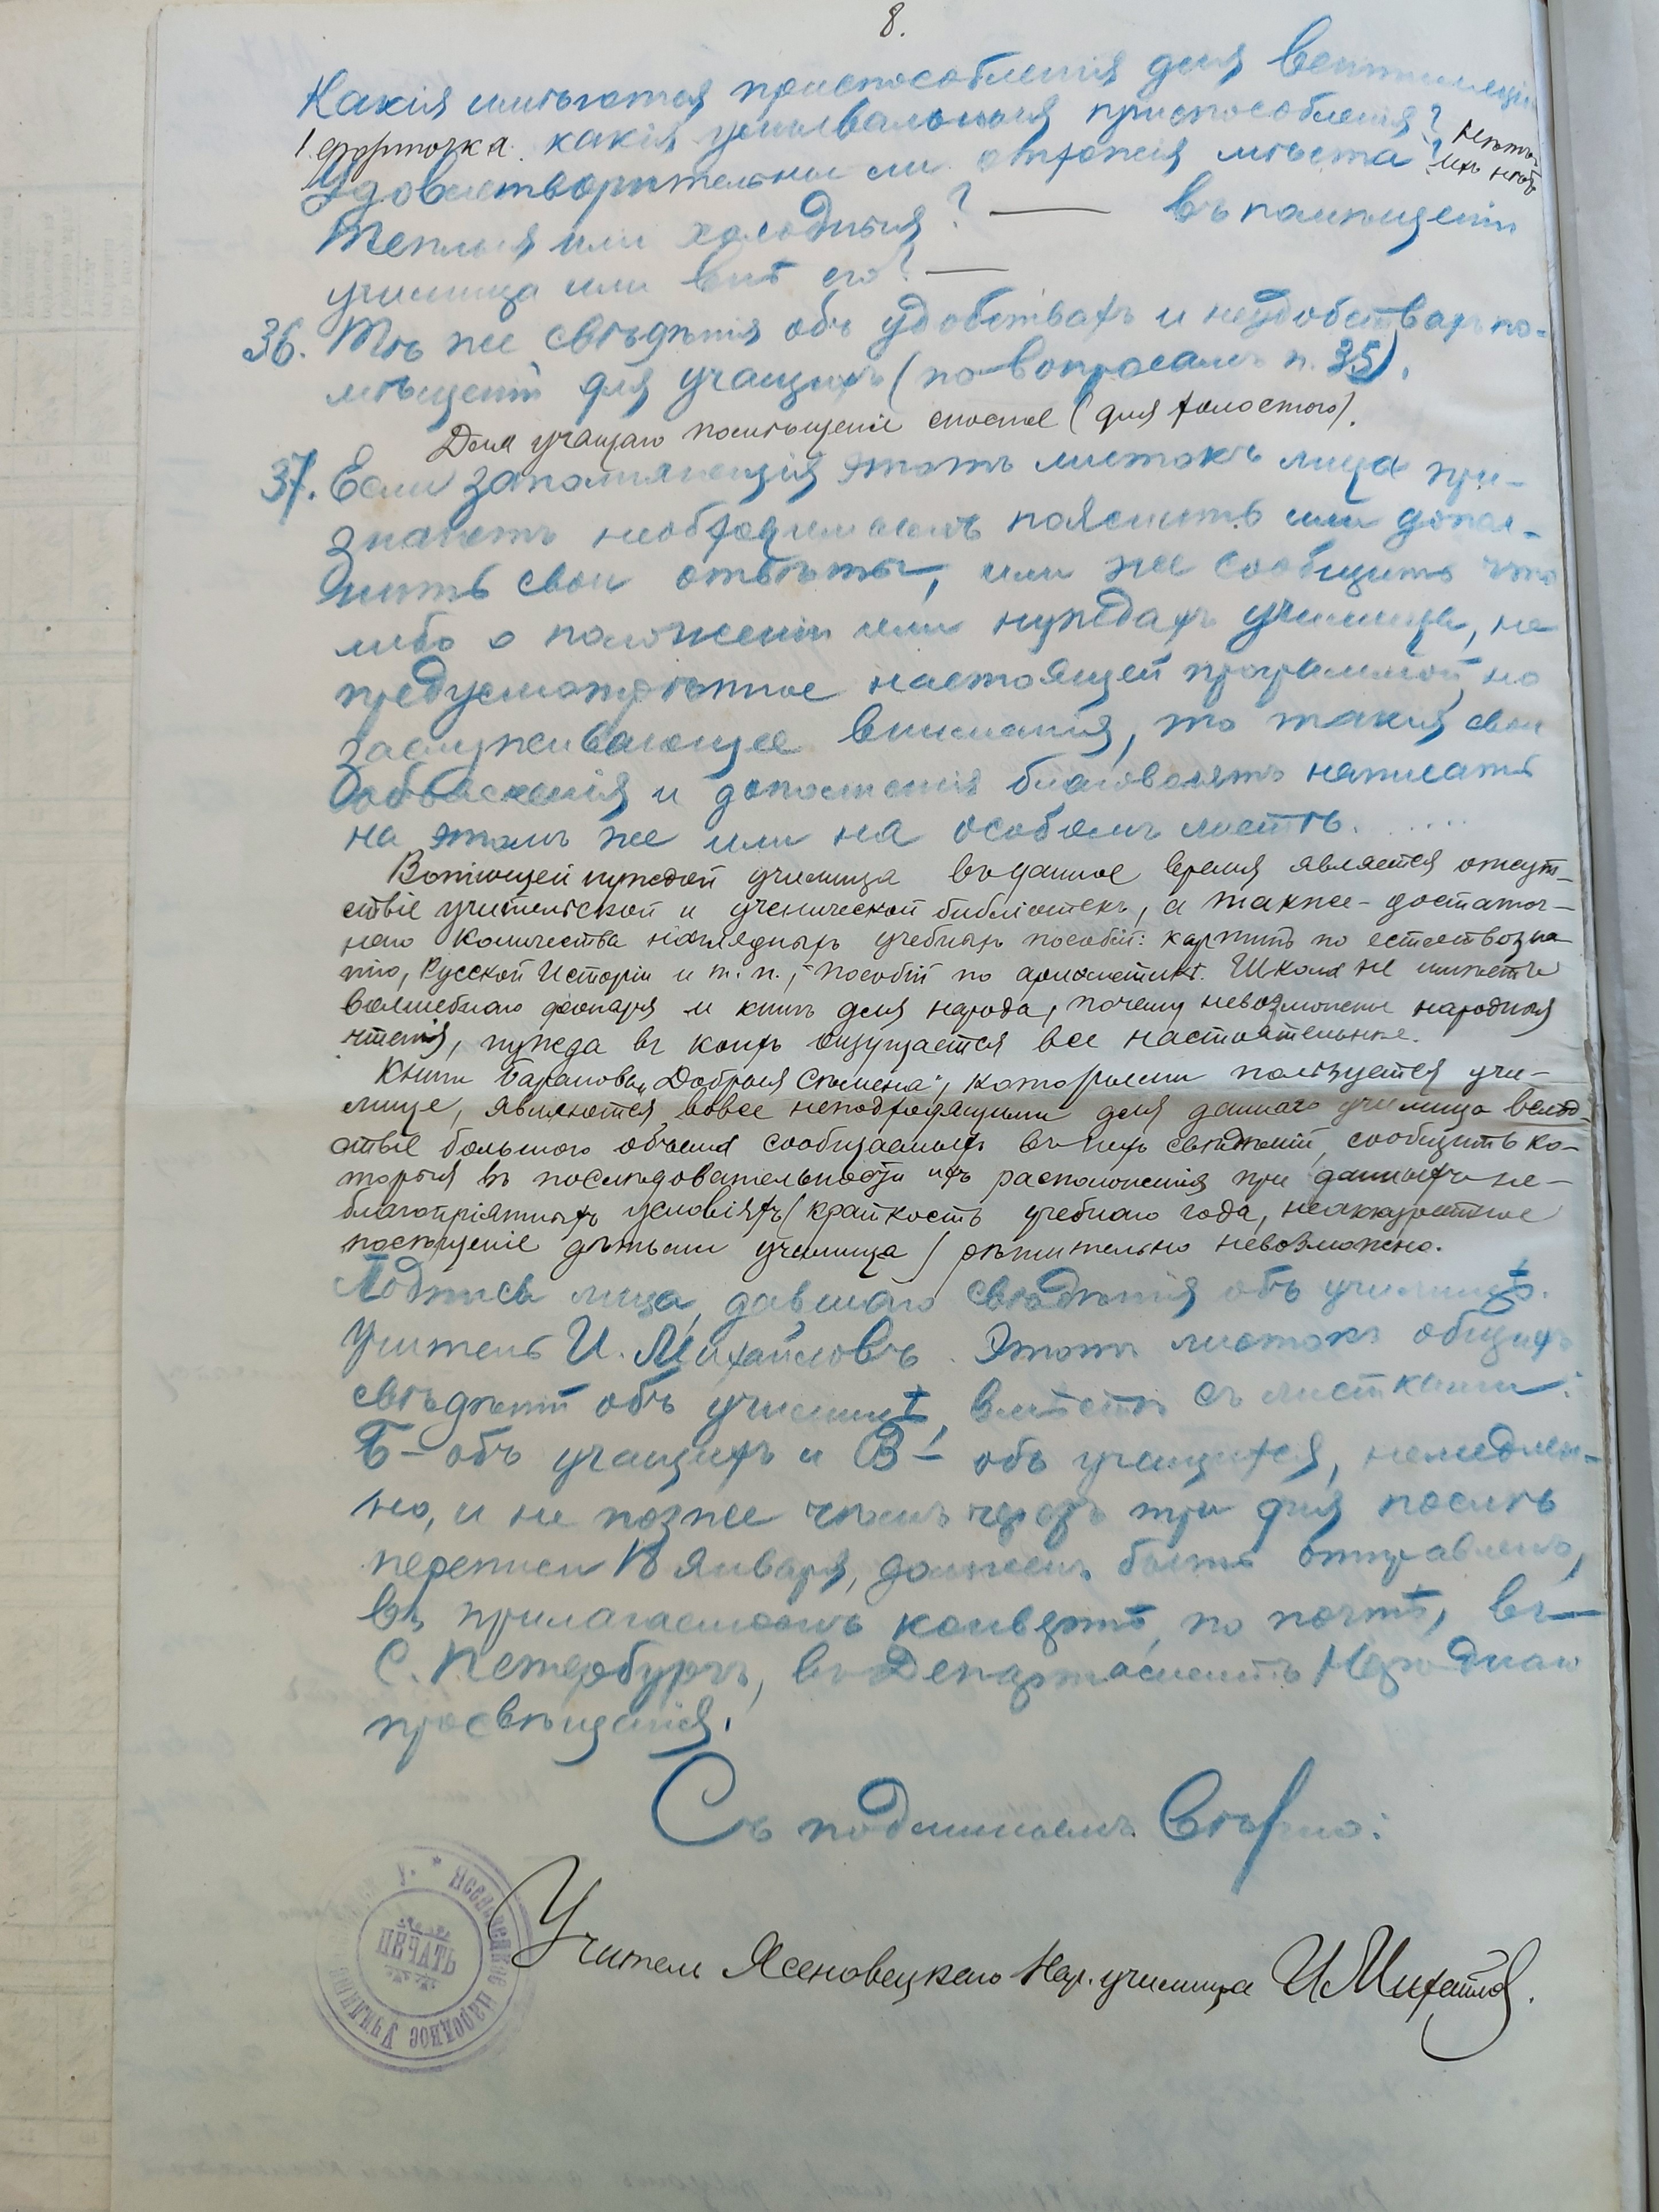 8.
Какія имѣются приспособленія для вентиляціи
1 форточка. какія умывальныя приспособленія? нѣтъ
Удовлетворительны ли отхожія мѣста? ихъ нѣтъ
Теплыя или холодныя? — въ помѣщеніи
училища или внѣ его? —
36. Тѣ же свѣдѣнія объ удобствахъ и неудобствахъ по-
мѣщеній для учащихъ (по вопросамъ п. 35).
Для учащаго помѣщеніе сносное (для холостого).
37. Если заполняющія этотъ листокъ лица при-
знаютъ необходимымъ пояснить или допол-
нить свои отвѣты, или же сообщить что
либо о положеніи или нуждахъ училища, не
предусмотрѣнное настоящей программой, но
заслуживающее вниманія, то такія свои
добавленія и дополненія благоволятъ написать
на этомъ же или на особомъ листѣ. .....
Вопіющей нуждой училища въ данное время является отсут-
ствіе учительской и ученической библіотекъ, а также - достаточ-
наго количества наглядныхъ учебныхъ пособій: картинъ по естествозна-
нію, Русской Исторіи и т. п., пособій по ариөметикѣ. Школа не имѣетъ
волшебнаго фонаря и книгъ для народа, почему невозможны народныя
чтенія, нужда въ коихъ ощущается все настоятельнѣе.
Книги Баранова „Добрыя Сѣмена", которыми пользуется учи-
лище, являются вовсе неподходящими для даннаго училища вслѣд-
ствіе большого объема сообщаемыхъ въ нихъ свѣдѣній, сообщить ко-
торыя въ послѣдовательности ихъ расположенія при данныхъ не-
благопріятныхъ условіяхъ (краткость учебнаго года, неаккуратное
посѣщеніе дѣтьми училища) рѣшительно невозможно.
Подпись лица, давшаго свѣдѣнія объ училищѣ.
Учитель И. Михайловъ. Этотъ листокъ общихъ
свѣдѣній объ училищѣ, вмѣстѣ съ листками:
Б - объ учащихъ и В - объ учащихся, немедлен-
но, и не позже чѣмъ черезъ три дня послѣ
переписи 18 Января, долженъ быть отправленъ,
въ прилагаемомъ конвертѣ, по почтѣ, въ
С. Петербургъ, въ Департаментъ Народнаго
просвѣщенія.
Съ подлиннымъ вѣрно:
Учитель Ясеновецкаго Нар. училища И Михайлов.
народное Училище
ПЕЧАТЬ